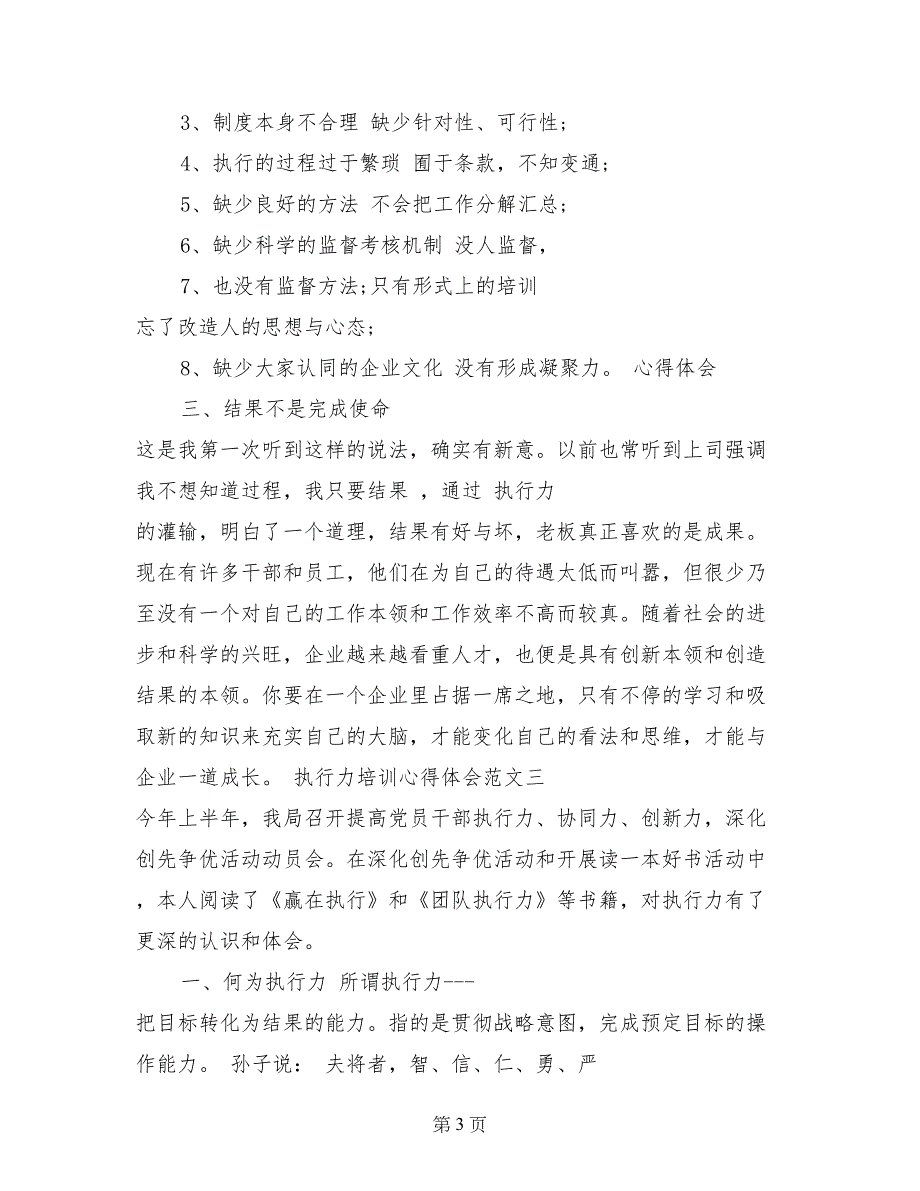 3、制度本身不合理 缺少针对性、可行性;
4、执行的过程过于繁琐 囿于条款，不知变通;
5、缺少良好的方法 不会把工作分解汇总;
6、缺少科学的监督考核机制 没人监督，
7、也没有监督方法;只有形式上的培训
忘了改造人的思想与心态;
8、缺少大家认同的企业文化 没有形成凝聚力。 心得体会
三、结果不是完成使命
这是我第一次听到这样的说法，确实有新意。以前也常听到上司强调
我不想知道过程，我只要结果 ，通过 执行力
的灌输，明白了一个道理，结果有好与坏，老板真正喜欢的是成果。
现在有许多干部和员工，他们在为自己的待遇太低而叫嚣，但很少乃
至没有一个对自己的工作本领和工作效率不高而较真。随着社会的进
步和科学的兴旺，企业越来越看重人才，也便是具有创新本领和创造
结果的本领。你要在一个企业里占据一席之地，只有不停的学习和吸
取新的知识来充实自己的大脑，才能变化自己的看法和思维，才能与
企业一道成长。 执行力培训心得体会范文三
今年上半年，我局召开提高党员干部执行力、协同力、创新力，深化
创先争优活动动员会。在深化创先争优活动和开展读一本好书活动中
，本人阅读了《赢在执行》和《团队执行力》等书籍，对执行力有了
更深的认识和体会。
一、何为执行力 所谓执行力---
把目标转化为结果的能力。指的是贯彻战略意图，完成预定目标的操
作能力。 孙子说： 夫将者，智、信、仁、勇、严
第 3 页